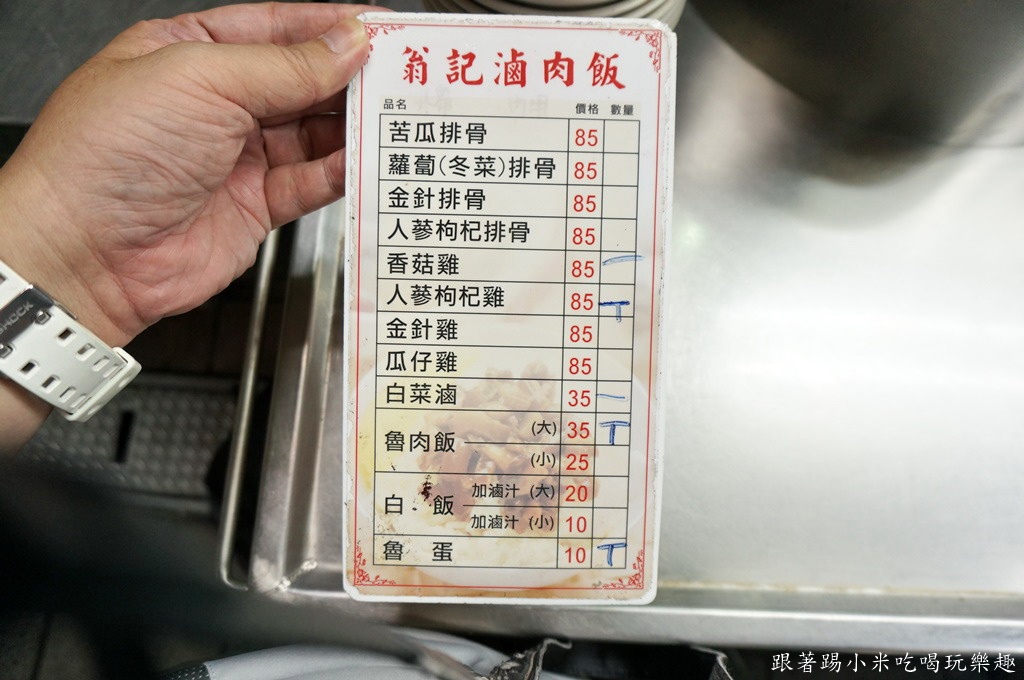 翁記滷肉飯
品名 價格 數量
苦瓜排骨 85
蘿蔔(冬菜)排骨 85
金針排骨 85
人蔘枸杞排骨 85
香菇雞 85 一
人蔘枸杞雞 85 T
金針雞 85
瓜仔雞 85
白菜滷 35 一
魯肉飯 (大) 35 T
(小) 25
白飯 加滷汁 (大) 20
加滷汁 (小) 10
魯蛋 10 T
SHOCK
跟著踢小米吃喝玩樂趣